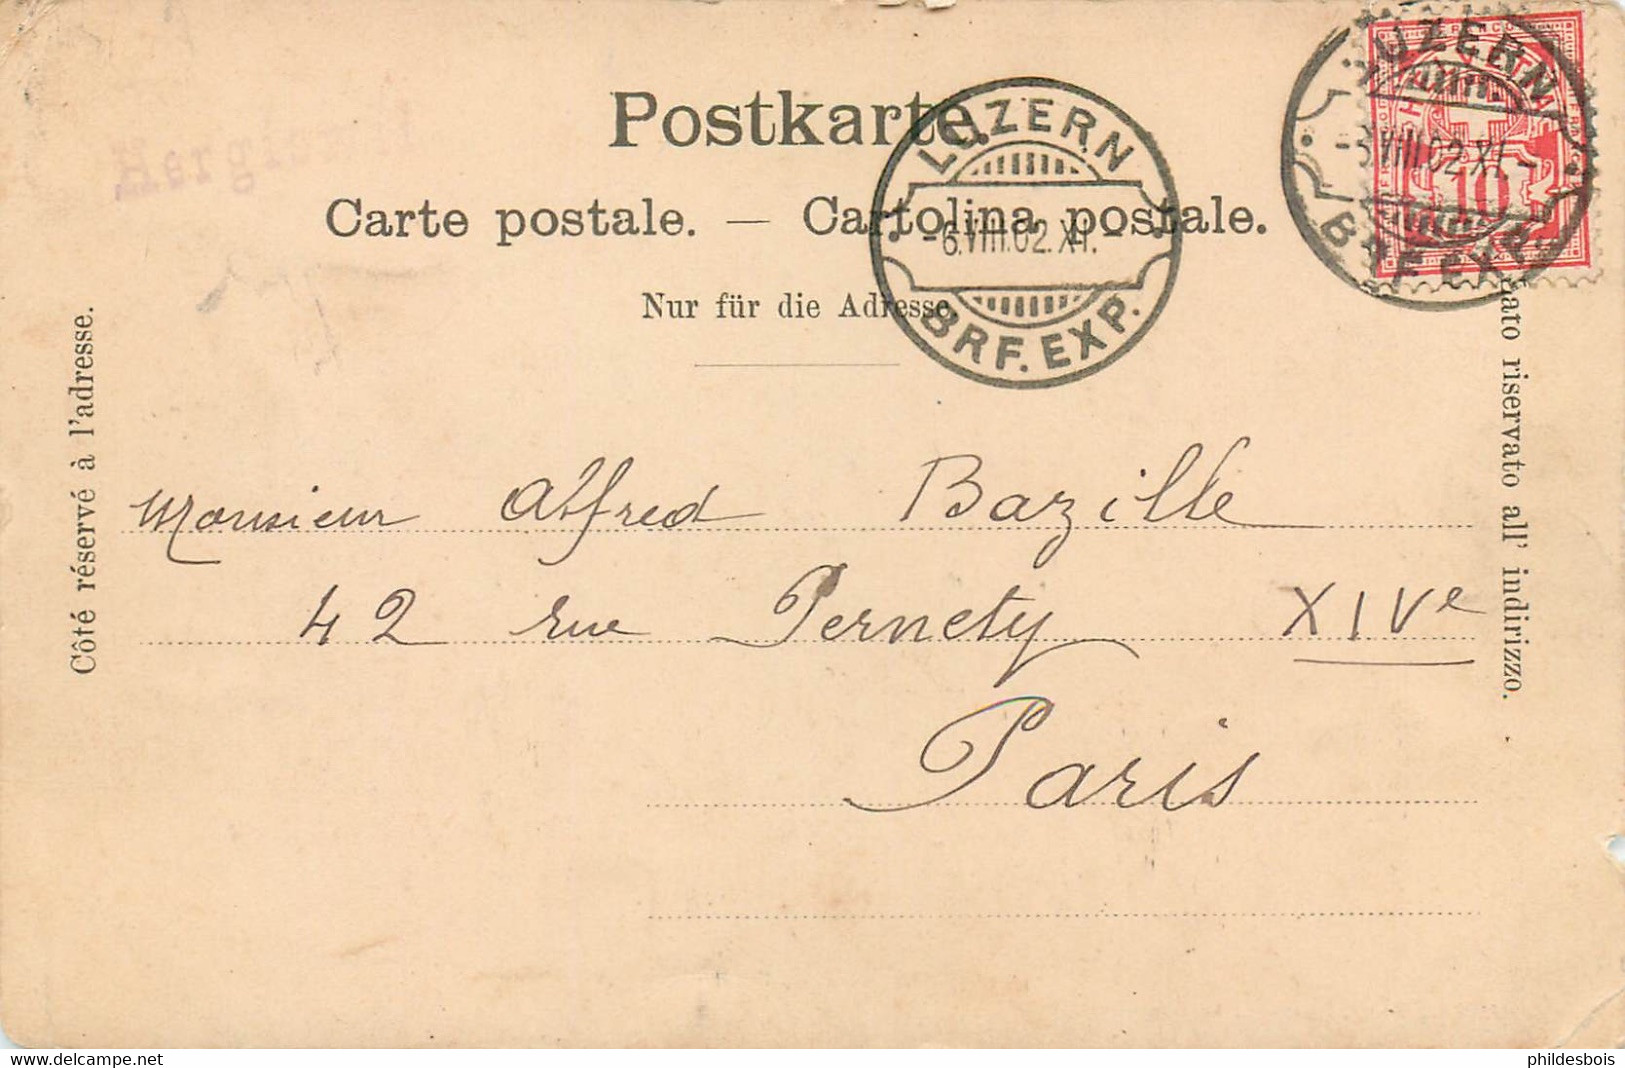 Postkarte.
Carte postale. — Cartolina postale.
Nur für die Adresse.
LUZERN
-6.VIII.02.XI.-
BRF. EXP.
LUZERN
-3.VIII.02.XI.-
10
Côté réservé à l'adresse.
riservato all' indirizzo.
Monsieur Alfred Bazille
42 rue Pernety XIVe
Paris
www.delcampe.net
phildesbois